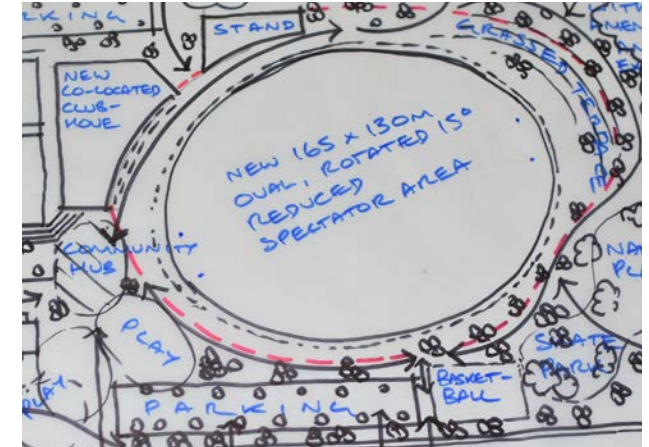 RKING
STAND
NEW
CO-LOCATED
CLUB-
HOUE
GRASSED TERRACE
NEW 165 x 130M
OVAL, ROTATED 15°
REDUCED
SPECTATOR AREA
COMMUNITY
HUB
PLAY
PLAY
PARKING
BASKET-
BALL
SKATE
PARK
NA
PL